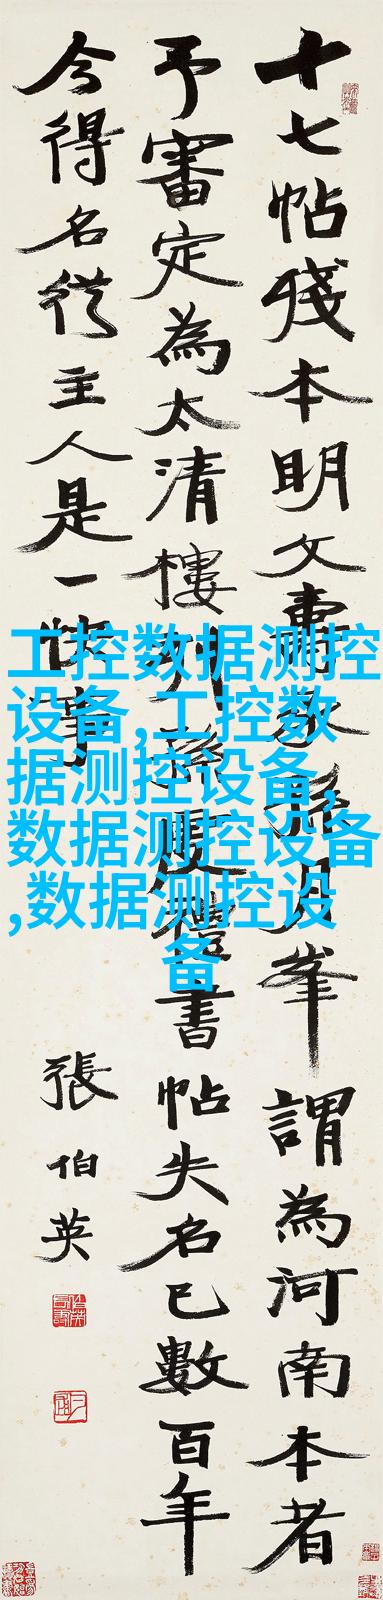 十七帖殘本明文壽承孫月峯謂為河南本者
予審定為太清樓書帖失名已數百年
今得名從主人是一快事
張伯英
工控数据测控
设备,工控数
据测控设备,
数据测控设备
,数据测控设
备